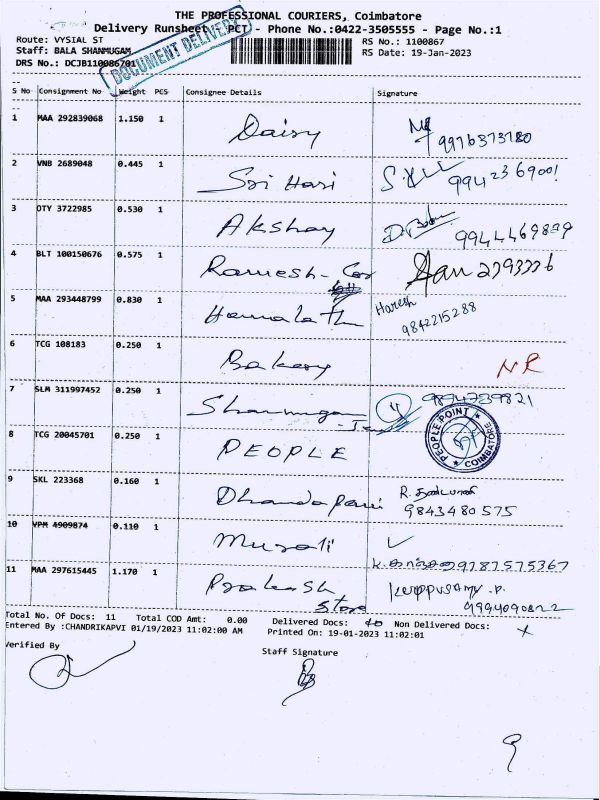 THE PROFESSIONAL COURIERS, Coimbatore
Delivery Runsheet PCT - Phone No.:0422-3505555 - Page No.:1
Route: VYSIAL ST
RS No.: 1100867
Staff: BALA SHANMUGAM
RS Date: 19-Jan-2023
DRS No.: DCJB110086701
DOCUMENT DELIVERY
S No Consignment No Weight PCS Consignee Details Signature
1 MAA 292839068 1.150 1 Daisy 9976373780
2 VNB 2689048 0.445 1 Sri Hari 9942369001
3 OTY 3722985 0.530 1 Akshay 9944469899
4 BLT 100150676 0.575 1 Ramesh - 2393336
5 MAA 293448799 0.830 1 Hemalatha Haresh
9842215288
6 TCG 108183 0.250 1 Bakery NR
7 SLM 311997452 0.250 1 Shanmugam 9894739821
8 TCG 20045701 0.250 1 PEOPLE PEOPLE POINT ★ COIMBATORE ★
9 SKL 223368 0.160 1 Dhandapani R.
9843480575
10 VPM 4909874 0.110 1 Murali ✓
9787575367
11 MAA 297615445 1.170 1 Prakash Karuppusamy .P.
Store 9994090822
Total No. Of Docs: 11 Total COD Amt: 0.00 Delivered Docs: Non Delivered Docs:
Entered By :CHANDRIKAPVI 01/19/2023 11:02:00 AM Printed On: 19-01-2023 11:02:01
Verified By
Staff Signature